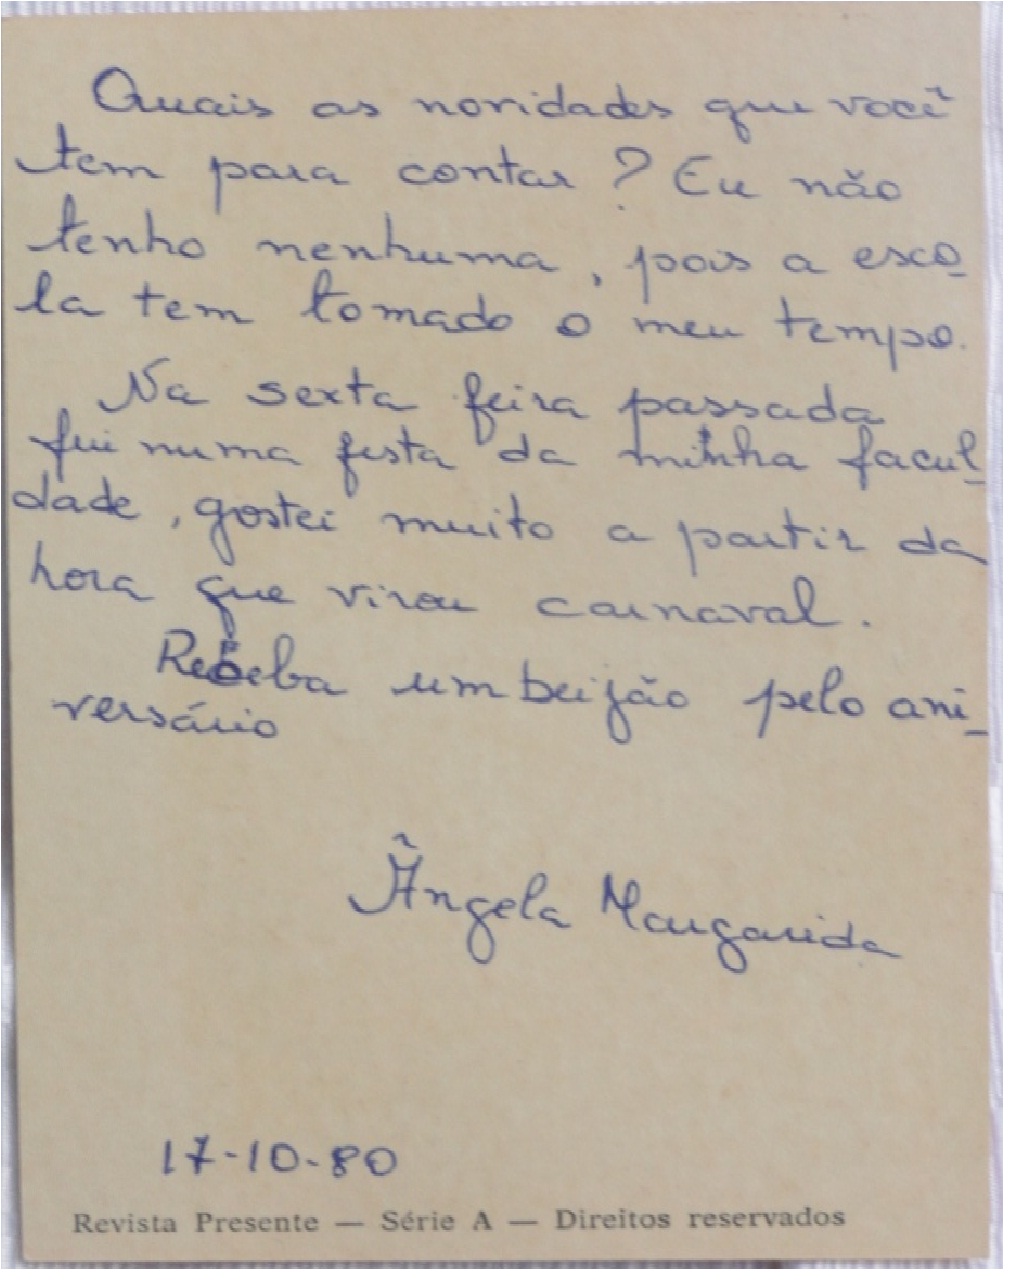 Quais as novidades que você
tem para contar? Eu não
tenho nenhuma, pois a esco-
la tem tomado o meu tempo.
Na sexta feira passada
fui numa festa da minha facul-
dade, gostei muito a partir da
hora que virou carnaval.
Receba um beijão pelo ani-
versário
Ângela Margarida
17-10-80
Revista Presente — Série A — Direitos reservados